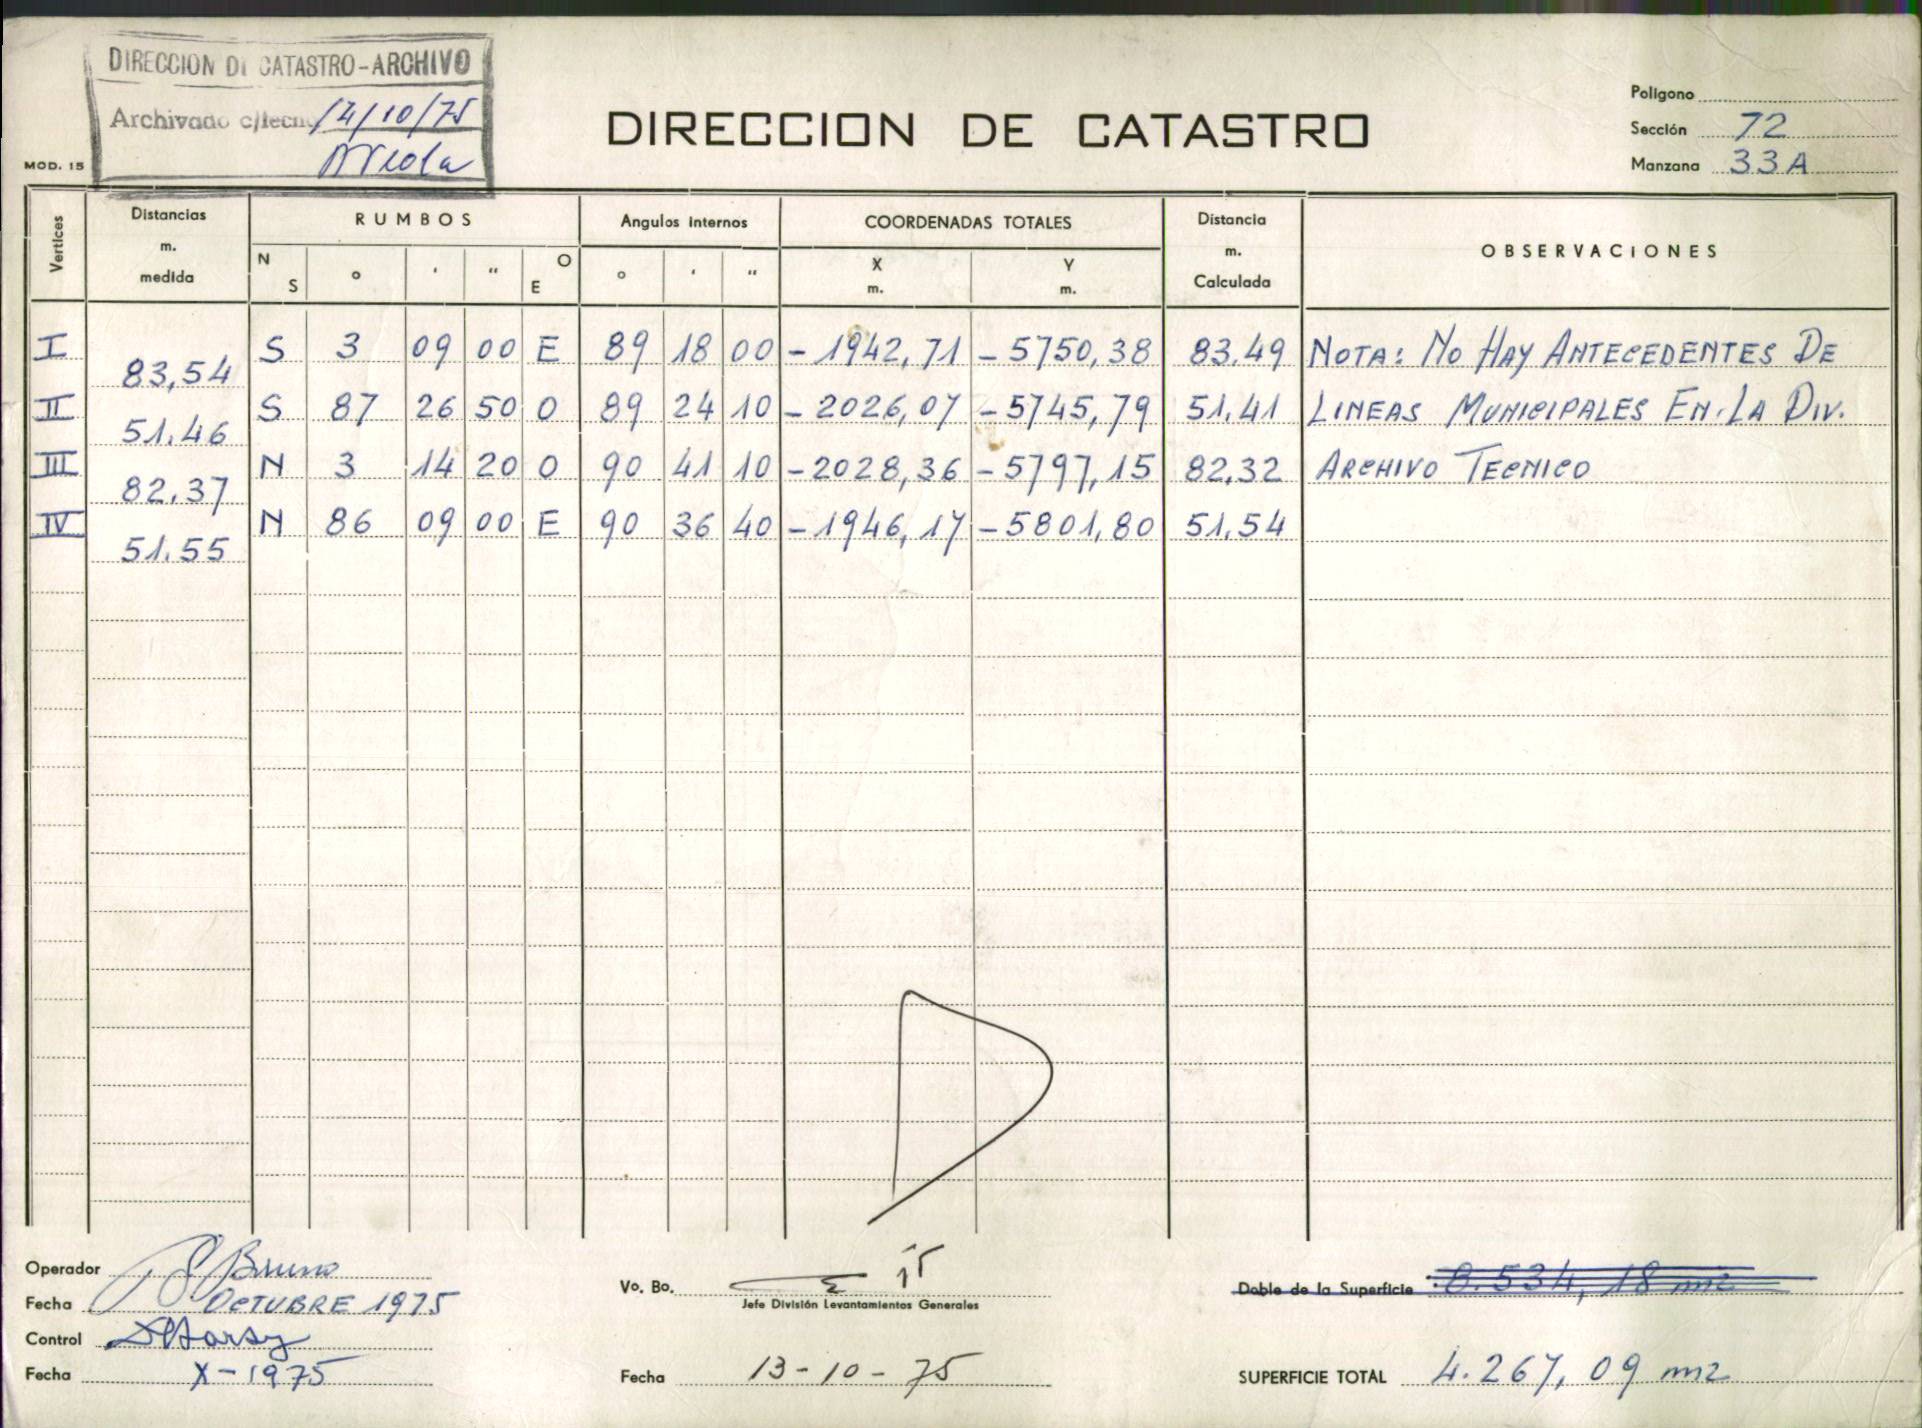 DIRECCION DE CATASTRO-ARCHIVO
Archivado c/fecha 14/10/75
MOD. 15
DIRECCION DE CATASTRO
Poligono
Sección 72
Manzana 33A
Vertices
Distancias m. medida
RUMBOS
N S ° ' " O E
Angulos internos
° ' "
COORDENADAS TOTALES
X m. Y m.
Distancia m. Calculada
OBSERVACIONES
I S 3 09 00 E 89 18 00 -1942,71 -5750,38 83.49 NOTA: NO HAY ANTECEDENTES DE
83,54
II S 87 26 50 O 89 24 10 -2026,07 -5745,79 51.41 LINEAS MUNICIPALES EN LA DIV.
51.46
III N 3 14 20 O 90 41 10 -2028,36 -5797,15 82,32 ARCHIVO TECNICO
82.37
IV N 86 09 00 E 90 36 40 -1946,17 -5801,80 51.54
51.55
Operador Bruno
Fecha OCTUBRE 1975
Control
Fecha X-1975
Vo. Bo.
Jefe División Levantamientos Generales
Fecha 13-10-75
Doble de la Superficie 8.534,18 m2
SUPERFICIE TOTAL 4.267,09 m2